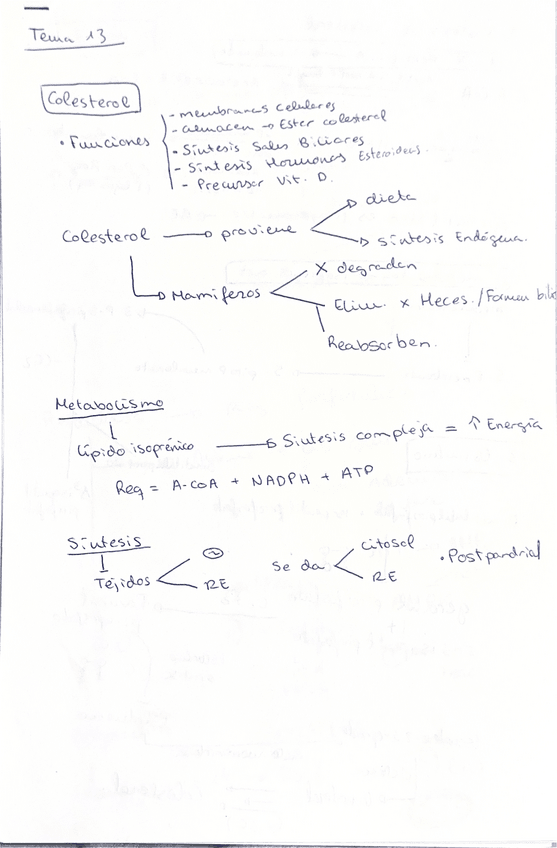 Tema 13
Colesterol
• Funciones
- membranas celulares
- almacen → Ester colesterol
- Síntesis Sales Biliares
- Síntesis Hormonas Esteroideas.
- Precursor Vit. D.
Colesterol → proviene
→ dieta
→ síntesis Endógena.
→ Mamíferos
X degradan
Elim. x Heces. / Forman bili
Reabsorben.
Metabolismo
Lípido isoprénico → Síntesis compleja = ↑ Energía
Req = A-CoA + NADPH + ATP
Síntesis
Tejidos
RE
Se da
citosol
RE
• Postpandrial